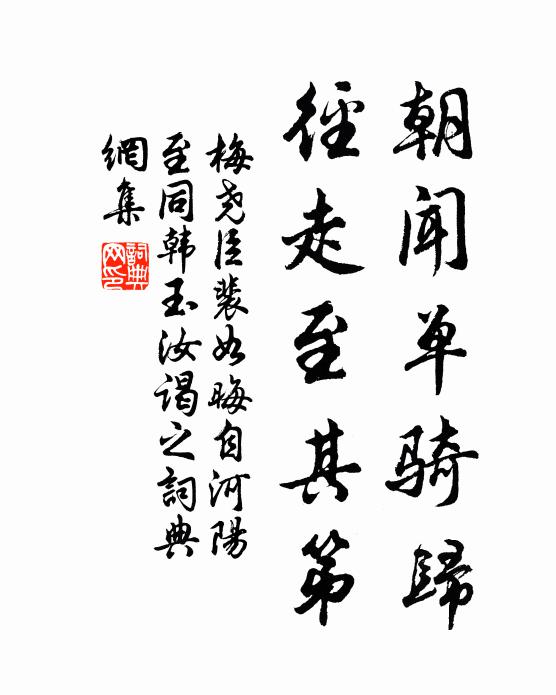 朝闻单骑歸
徑走至其第
梅尧臣裴如晦自河陽
至同韩玉汝谒之詞典
網集
詞典網印